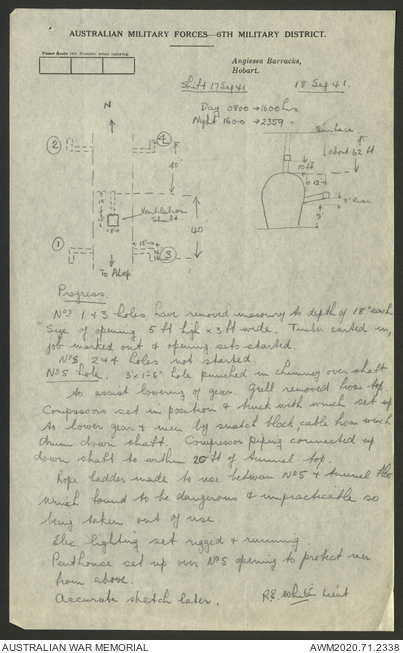 AUSTRALIAN MILITARY FORCES—6TH MILITARY DISTRICT.
Please Quote this Number when replying
Anglesea Barracks,
Hobart.
Shift 17 Sep 41
18 Sep 41.
Day 0800 → 1600 hrs
Night 1600 → 2359
N
2
4
40
Ventilation
Shaft
40
1
12'
3
To ALop
Surface
about 62 ft
10 ft
12'
9'
Progress.
Nos 1 & 3 holes have removed masonry to depth of 18" each
Size of opening 5 ft high x 3 ft wide. Timber carted in,
job marked out & opening sets started.
Nos 2 & 4 holes not started.
No 5 hole. 3' x 1'-6" hole punched in chimney over shaft
to assist lowering of gear. Grill removed from top.
Compressors set in position & truck with winch set up
to lower gear & men by snatch block cable from winch
drum down shaft. Compressor piping connected up
down shaft to within 20 ft of tunnel top.
Rope ladder made to use between No 5 & tunnel
which found to be dangerous & impracticable so
being taken out of use
Elec lighting set rigged & running.
Penthouse set up over No 5 opening to protect men
from above.
Accurate sketch later.
R.E. White Lieut
AUSTRALIAN WAR MEMORIAL
AWM2020.71.2338